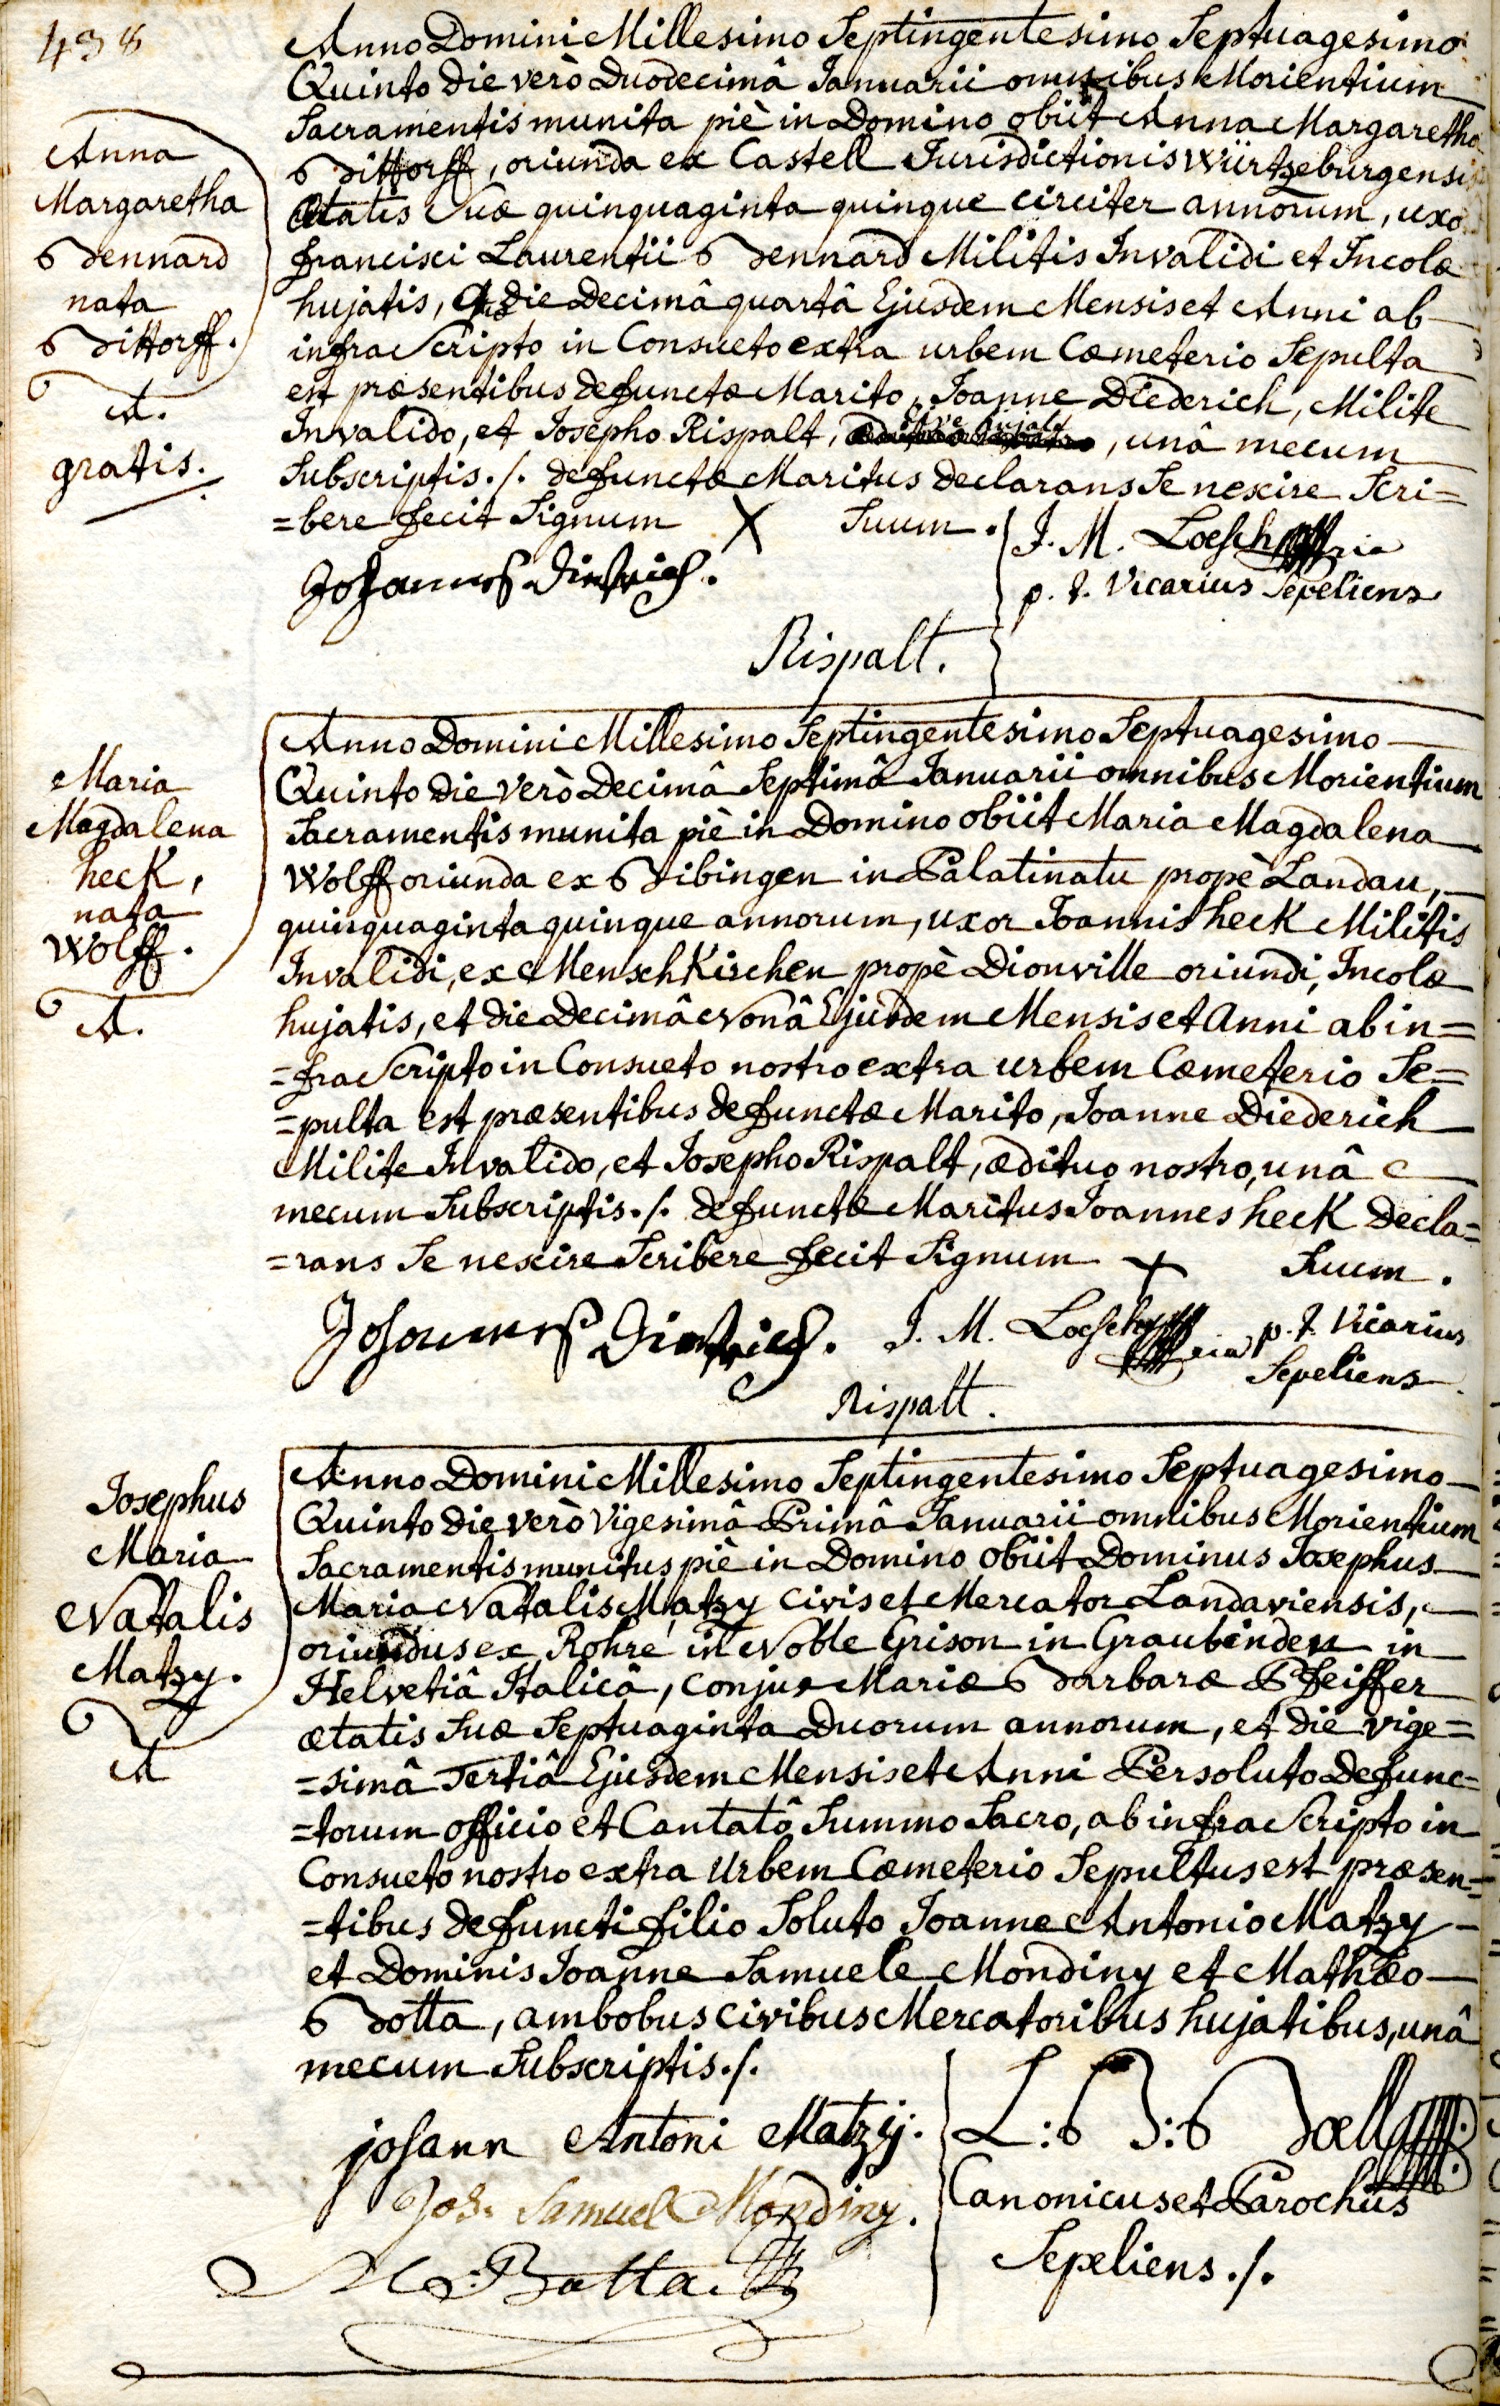 438
Anno Domini Millesimo Septingentesimo Septuagesimo
Quinto die verò Duodecimâ Januarii omnibus Morientium
Sacramentis munita piè in Domino obiit Anna Margaretha
Bittorff, oriunda ex Castell Jurisdictionis Würtzeburgensis
Ætatis Suæ quinquaginta quinque circiter annorum, uxor
francisci Laurentii Bennard Militis Invalidi et Incolæ
hujatis, die Decimâ quartâ Ejusdem Mensis et Anni ab
infra Scripto in Consueto extra urbem Cœmeterio Sepulta
est præsentibus defunctæ Marito, Joanne Diederich, Milite
Invalido, et Josepho Rispalt, Cive hujate, unâ mecum
Subscriptis./. defunctæ Maritus declarans Se nescire Scri=
=bere fecit Signum X Suum.
Anna
Margaretha
Bennard
nata
Bittorff.
A.
gratis.
Johannes Dietrich.
J. M. Loesch
p. t. Vicarius Sepeliens
Rispalt.
Maria
Magdalena
heck,
nata
Wolff.
A.
Anno Domini Millesimo Septingentesimo Septuagesimo
Quinto die verò Decimâ Septimâ Januarii omnibus Morientium
Sacramentis munita piè in Domino obiit Maria Magdalena
Wolff oriunda ex Bibingen in Palatinatu propè Landau,
quinquaginta quinque annorum, uxor Joannis heck Militis
Invalidi, ex MenschKirchen propè Dionville oriundi, Incolæ
hujatis, et die Decimâ Nonâ Ejusdem Mensis et Anni ab in=
=fra Scripto in Consueto nostro extra urbem Cœmeterio Se=
=pulta est præsentibus defunctæ Marito, Joanne Diederich
Milite Invalido, et Josepho Rispalt, ædituo nostro, unâ
mecum Subscriptis./. defunctæ Maritus Joannes heck Decla=
=rans Se nescire Scribere fecit Signum + Suum.
Johannes Dietrich. J. M. Loesch p. t. Vicarius
Sepeliens
Rispalt.
Josephus
Maria
Natalis
Matzy.
A
Anno Domini Millesimo Septingentesimo Septuagesimo
Quinto die verò Vigesimâ Primâ Januarii omnibus Morientium
Sacramentis munitus piè in Domino obiit Dominus Josephus
Maria Natalis Matzy Civis et Mercator Landaviensis,
oriundus ex Rohre in Noble Grison in Graubinden in
Helvetiâ Italicâ, conjux Mariæ Barbaræ Pfeiffer
ætatis Suæ Septuaginta Duorum annorum, et die vige=
=simâ Tertiâ Ejusdem Mensis et Anni Persoluto Defunc=
=torum officio et Cantatô Summo Sacro, ab infra Scripto in
Consueto nostro extra Urbem Cœmeterio Sepultus est præsen=
=tibus defuncti filio Soluto Joanne Antonio Matzy
et Dominis Joanne Samuele Mondiny et Mathæo
Botta, ambobus civibus Mercatoribus hujatibus, unâ
mecum Subscriptis./.
johann Antoni Matzÿ.
Joh. Samuel Mondiny.
M. Botta.
L: B: B
Canonicus et Parochus
Sepeliens./.